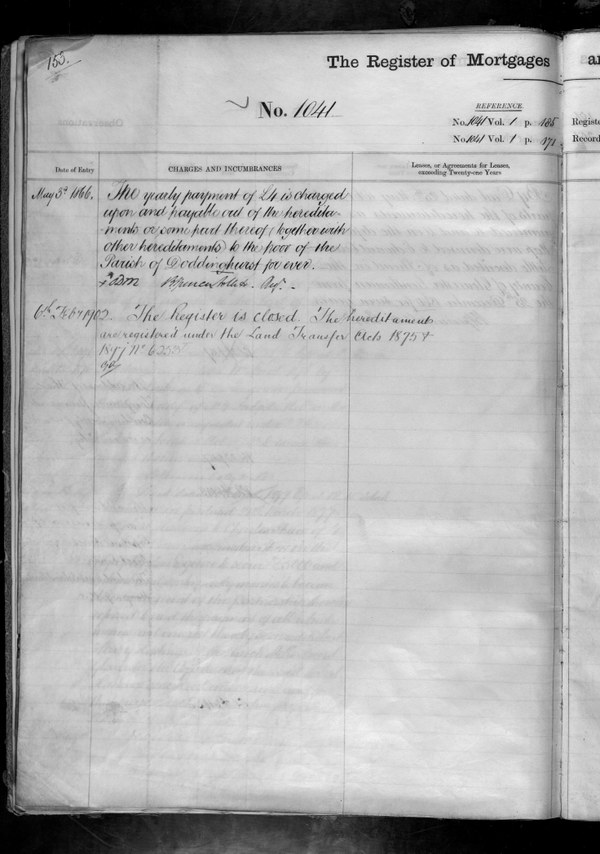 155.
The Register of Mortgages
No. 1041
REFERENCE.
No. 1041 Vol. 1 p. 185
No. 1041 Vol. 1 p. 171
Registe
Record
Date of Entry
CHARGES AND INCUMBRANCES
Leases, or Agreements for Leases,
exceeding Twenty-one Years
May 5th 1866.
The yearly payment of £4 is charged
upon and payable out of the heredita-
ments or some part thereof (together with
other hereditaments) to the poor of the
Parish of Doddinghurst for ever.
Spencer Follett. Regr.
6th Feby 1902. The Register is closed. The hereditaments
are registered under the Land Transfer Acts 1875 &
1897 No